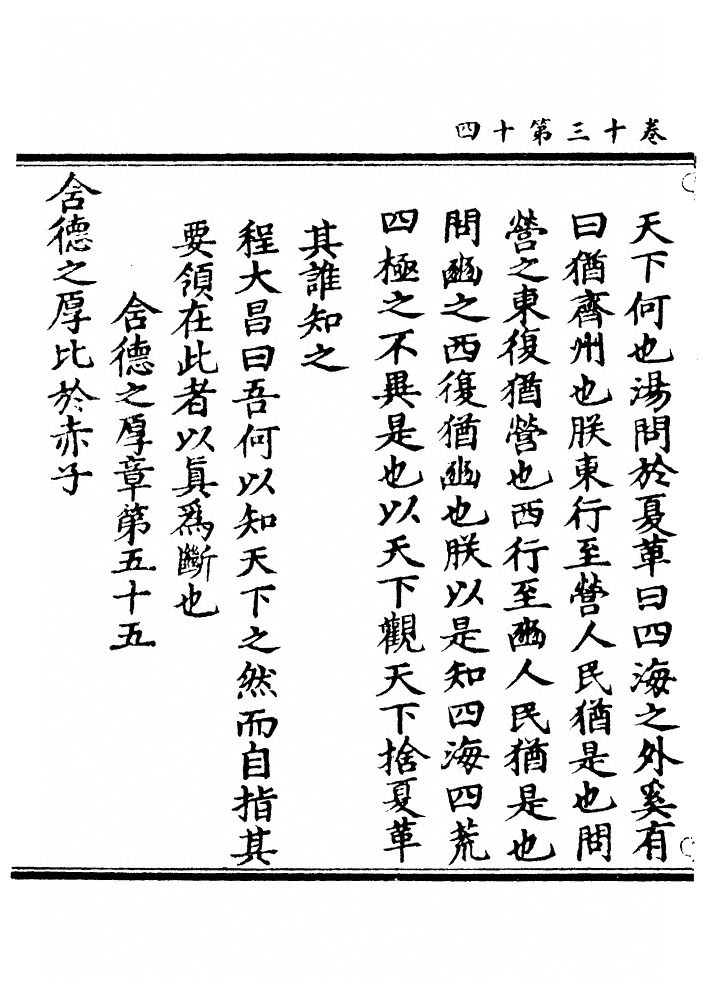 卷十三第十四
天下何也湯問於夏革曰四海之外奚有
曰猶齊州也朕東行至營人民猶是也問
營之東復猶營也西行至豳人民猶是也
問豳之西復猶豳也朕以是知四海四荒
四極之不異是也以天下觀天下捨夏革
其誰知之
程大昌曰吾何以知天下之然而自指其
要領在此者以眞爲斷也
含德之厚章第五十五
含德之厚比於赤子